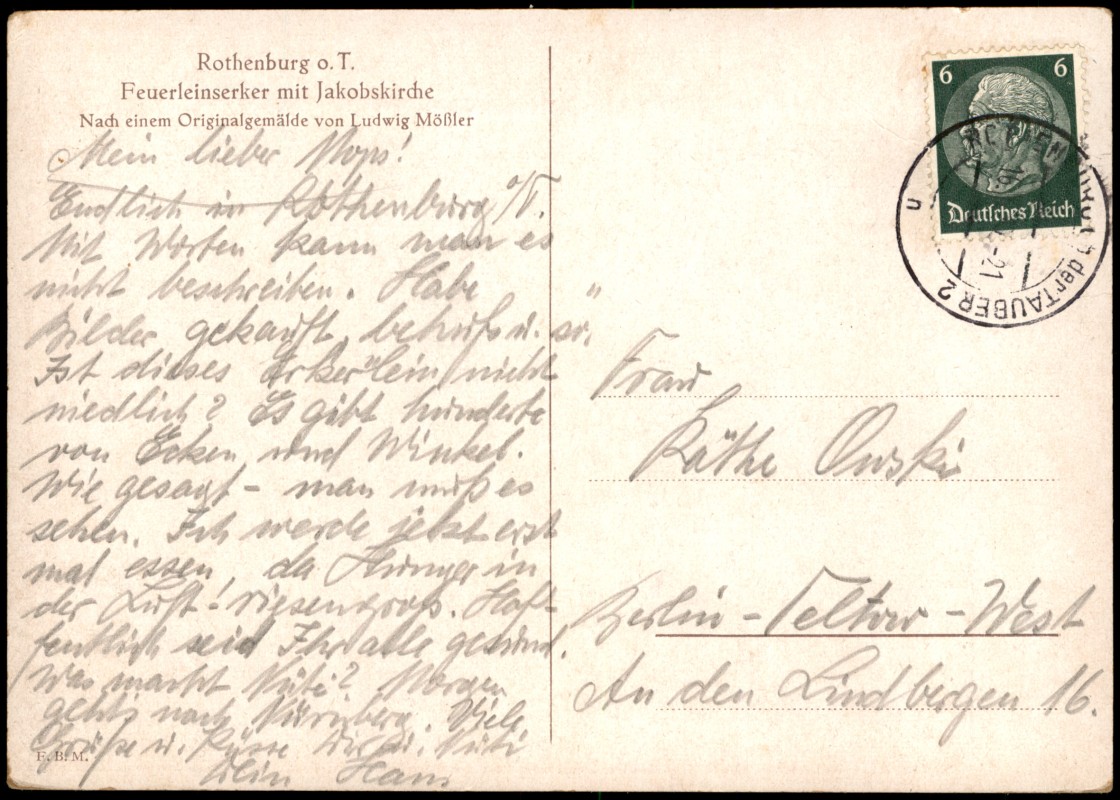 Rothenburg o. T.
Feuerleinserker mit Jakobskirche
Nach einem Originalgemälde von Ludwig Mößler
Mein lieber Mops!
Endlich in Rothenburg o/T.
Mit Worten kann man es
nicht beschreiben. Habe
Bilder gekauft,
Ist dieses Erkerlein nicht
niedlich? Es gibt hunderte
von Ecken und Winkel.
Wie gesagt – man muß es
sehen. Ich werde jetzt erst
mal essen, da Hunger in
der Luft! riesengroß. Hof-
fentlich seid Ihr alle gesund.
Was macht Muti? Morgen
gehts nach Nürnberg. Viele
Grüße u. Küsse Dir u. Muti
Dein Hans
F. B. M.
6 6
Deutsches Reich
der TAUBER 2
-21
u
Frau
Käthe Onski
Berlin-Teltow-West
An den Lindbergen 16.